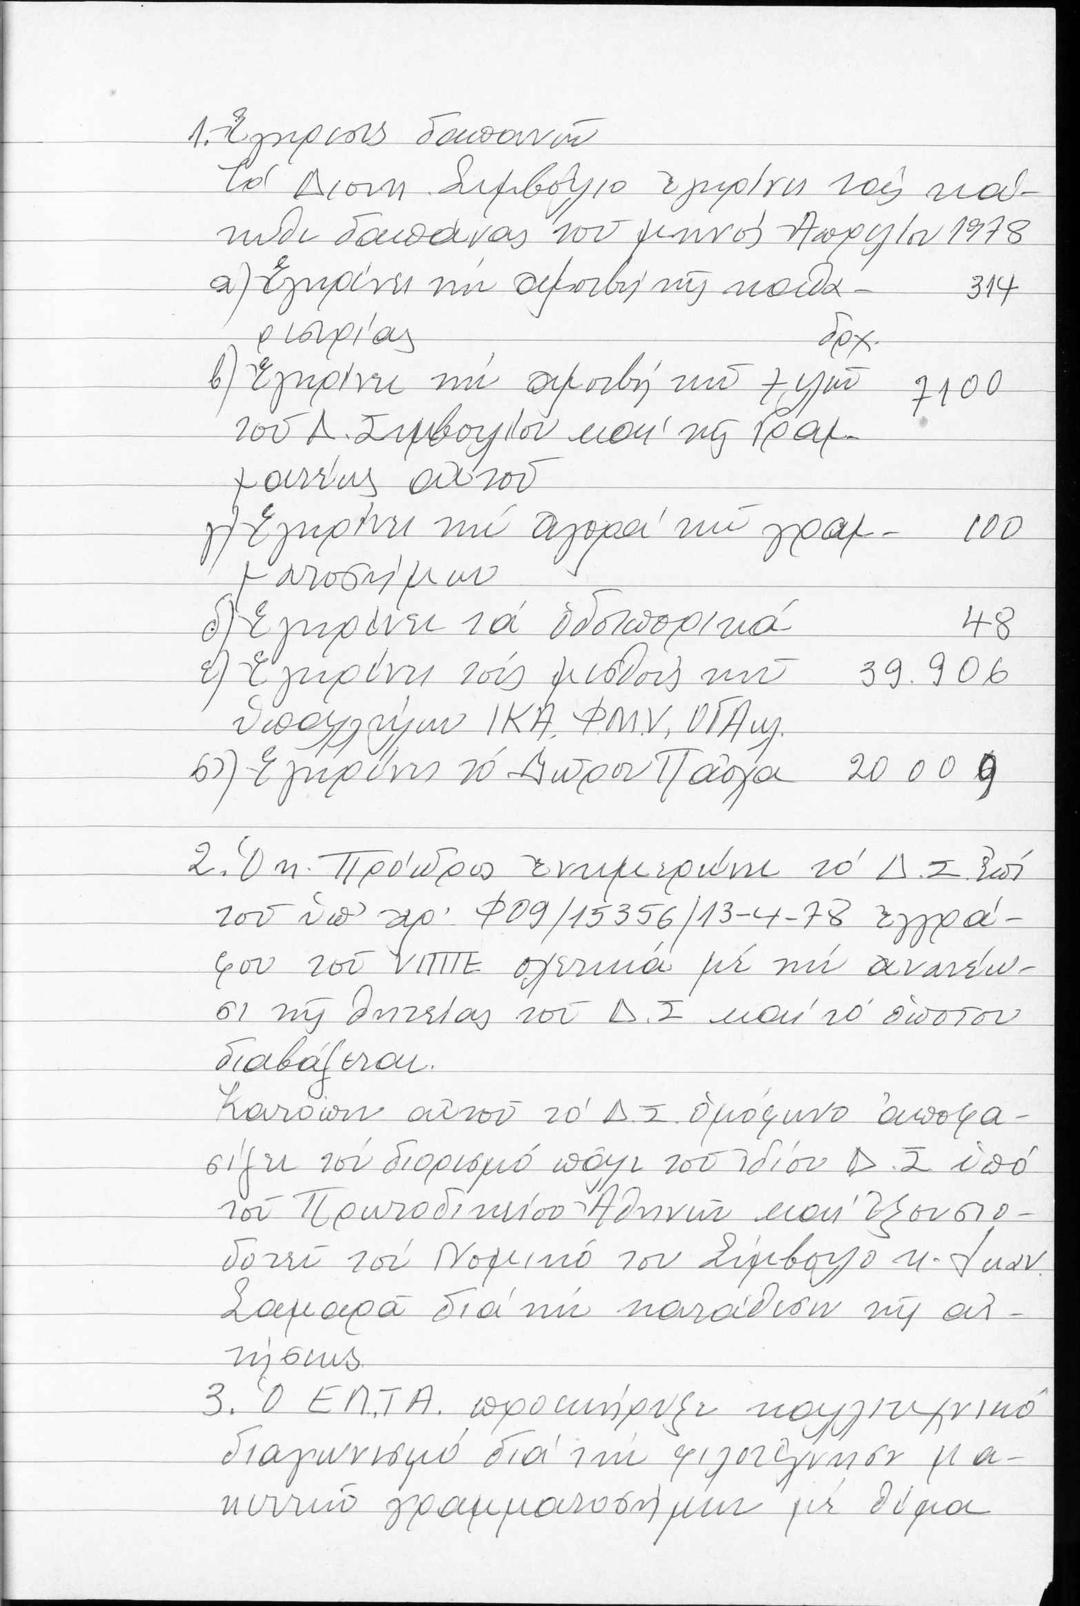 1. Ἔγκρισις δαπανῶν
Τό Διοικ. Συμβούλιο ἐγκρίνει τάς κά-
τωθι δαπάνας τοῦ μηνός Ἀπριλίου 1978
α) Ἐγκρίνει τήν ἀμοιβή τῆς καθα- 314
ριστρίας δρχ.
β) Ἐγκρίνει τήν ἀμοιβή τῶν μελῶν 7100
τοῦ Δ. Συμβουλίου καί τῆς Γραμ-
ματέως αὐτοῦ
γ) Ἐγκρίνει τήν ἀγορά τῶν γραμ- 100
ματοσήμων
δ) Ἐγκρίνει τά ὁδοιπορικά 48
ε) Ἐγκρίνει τούς μισθούς τῶν 39.906
ὑπαλλήλων ΙΚΑ, ΦΜΥ, ΟΓΑ κλ.
στ) Ἐγκρίνει τό Δῶρον Πάσχα 20 000
2. Ὁ κ. Πρόεδρος ἐνημερώνει τό Δ.Σ. ἐπί
τοῦ ὑπ' ἀρ. Φ09/15356/13-4-78 ἐγγρά-
φου τοῦ ΥΠΠΕ σχετικά μέ τήν ἀνανέω-
ση τῆς θητείας τοῦ Δ.Σ καί τό ὁποῖον
διαβάζεται.
Κατόπιν αὐτοῦ τό Δ.Σ. ὁμόφωνα ἀποφα-
σίζει τόν διορισμό πάλι τοῦ ἰδίου Δ.Σ ὑπό
τοῦ Πρωτοδικείου Ἀθηνῶν καί ἐξουσιο-
δοτεῖ τόν Νομικό του Σύμβουλο κ. Ἰωάν.
Σαμαρᾶ διά τήν κατάθεσιν τῆς αἰ-
τήσεως
3. Ὁ Ε.Π.Τ.Α. προεκήρυξε καλλιτεχνικό
διαγωνισμό διά τήν φιλοτέχνησιν μα-
κεττῶν γραμματοσήμων μέ θέμα